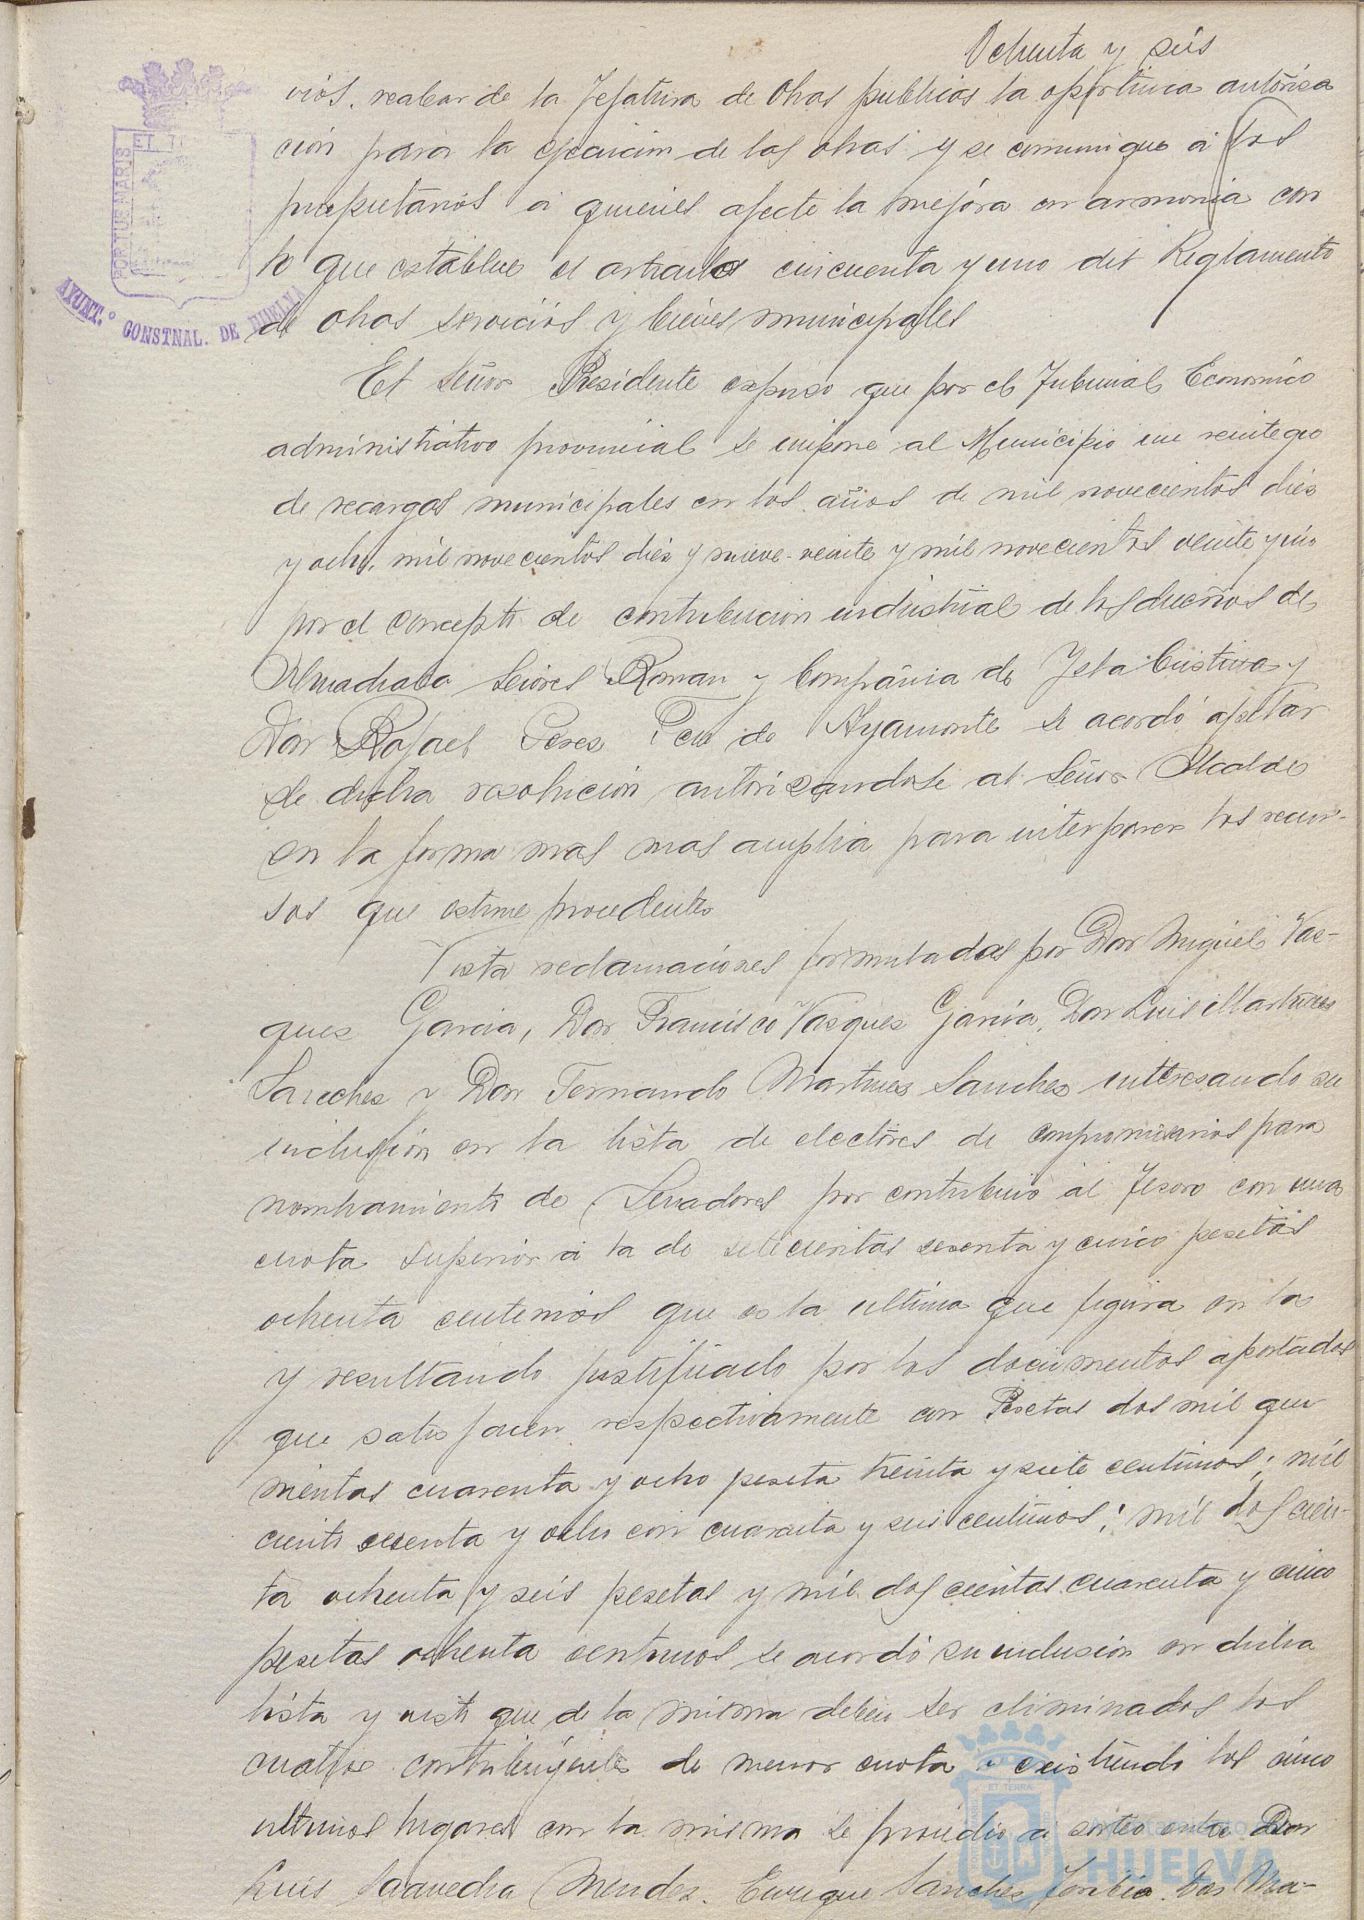 Ochenta y seis
vios, recabar de la Jefatura de Obras publicas la oportuna autoriza
ción para la ejecución de las obras y se comunique a los
propietarios a quienes afecte la mejora en armonia con
lo que establece el articulo cincuenta y uno del Reglamento
de obras servicios y bienes municipales
PORTUS MARIS
AYUNT.º CONSTNAL. DE HUELVA
El Señor Presidente expuso que por el Tribunal Economico
administrativo provincial se impone al Municipio un reintegro
de recargos municipales en los años de mil novecientos diez
y ocho, mil novecientos diez y nueve-veinte y mil novecientos veinte y uno
por el concepto de contribucion industrial de los dueños de
Almadraba Señores Roman y Compañia de Isla Cristina y
Don Rafael Perez Feu de Ayamonte se acordó apelar
de dicha resolución autorizandose al Señor Alcalde
en la forma mas mas amplia para interponer los recur-
sos que estime procedentes
Vista reclamaciones formuladas por Don Miguel Vaz-
quez Garcia, Don Francisco Vazquez Garcia, Don Luis Martinez
Sanchez y Don Fernando Martinez Sanchez interesando su
inclusión en la lista de electores de compromisarios para
nombramiento de Senadores por contribuir al Tesoro con una
cuota superior a la de setecientas sesenta y cinco pesetas
ochenta centimos que es la ultima que figura en la
y resultando justificado por los documentos aportados
que satisfacen respectivamente con Pesetas dos mil qui
nientas cuarenta y ocho peseta treinta y siete centimos; mil
ciento sesenta y ocho con cuarenta y seis centimos; mil dos cien-
ta ochenta y seis pesetas y mil doscientas cuarenta y cinco
pesetas ochenta centimos se acordó su inclusion en dicha
lista y visto que de la misma deben ser eliminados los
cuatro contribuyentes de menor cuota y existiendo los cinco
ultimos lugares con la misma se procedio a sorteo entre Don
Luis Saavedra Mendez. Enrique Sanchez Toribio. Don Ma-
Ayuntamiento
HUELVA